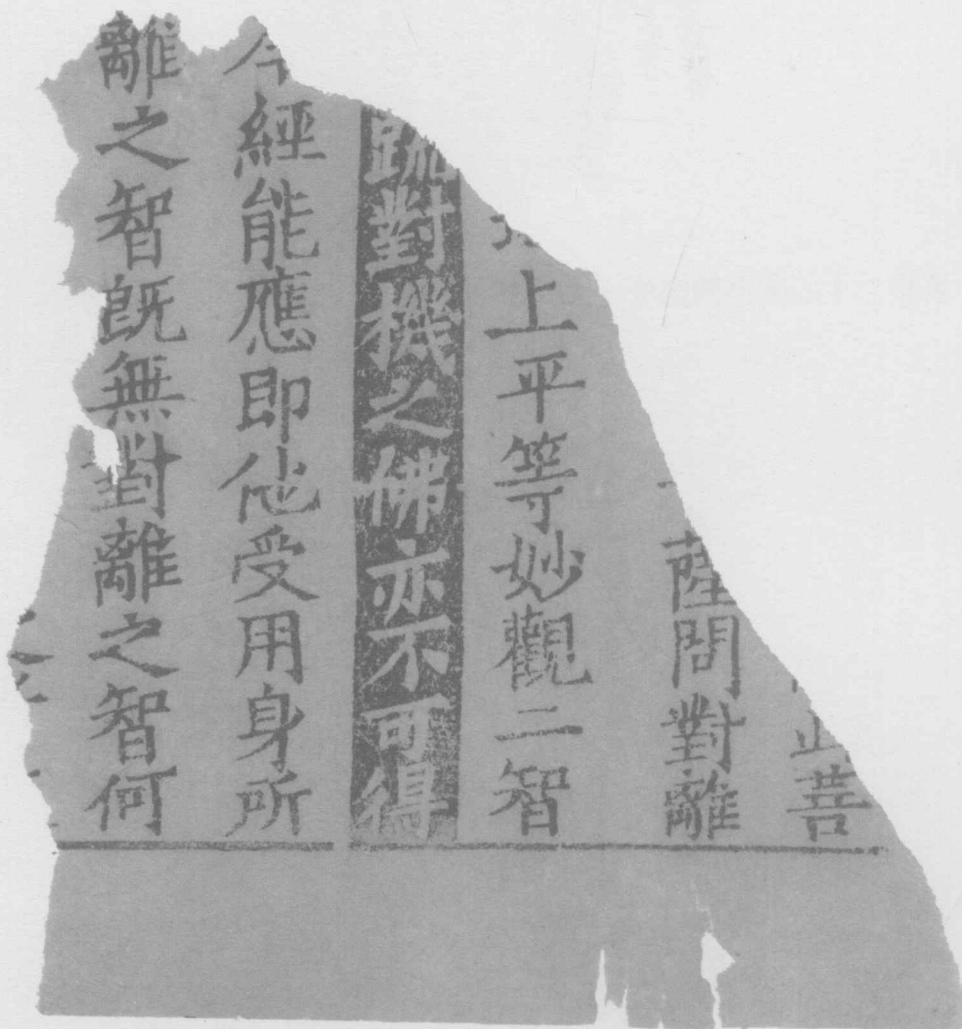 菩
薩問對離
上平等妙觀二智
疏對機之佛亦不可得
今經能應即他受用身所
離之智既無對離之智何